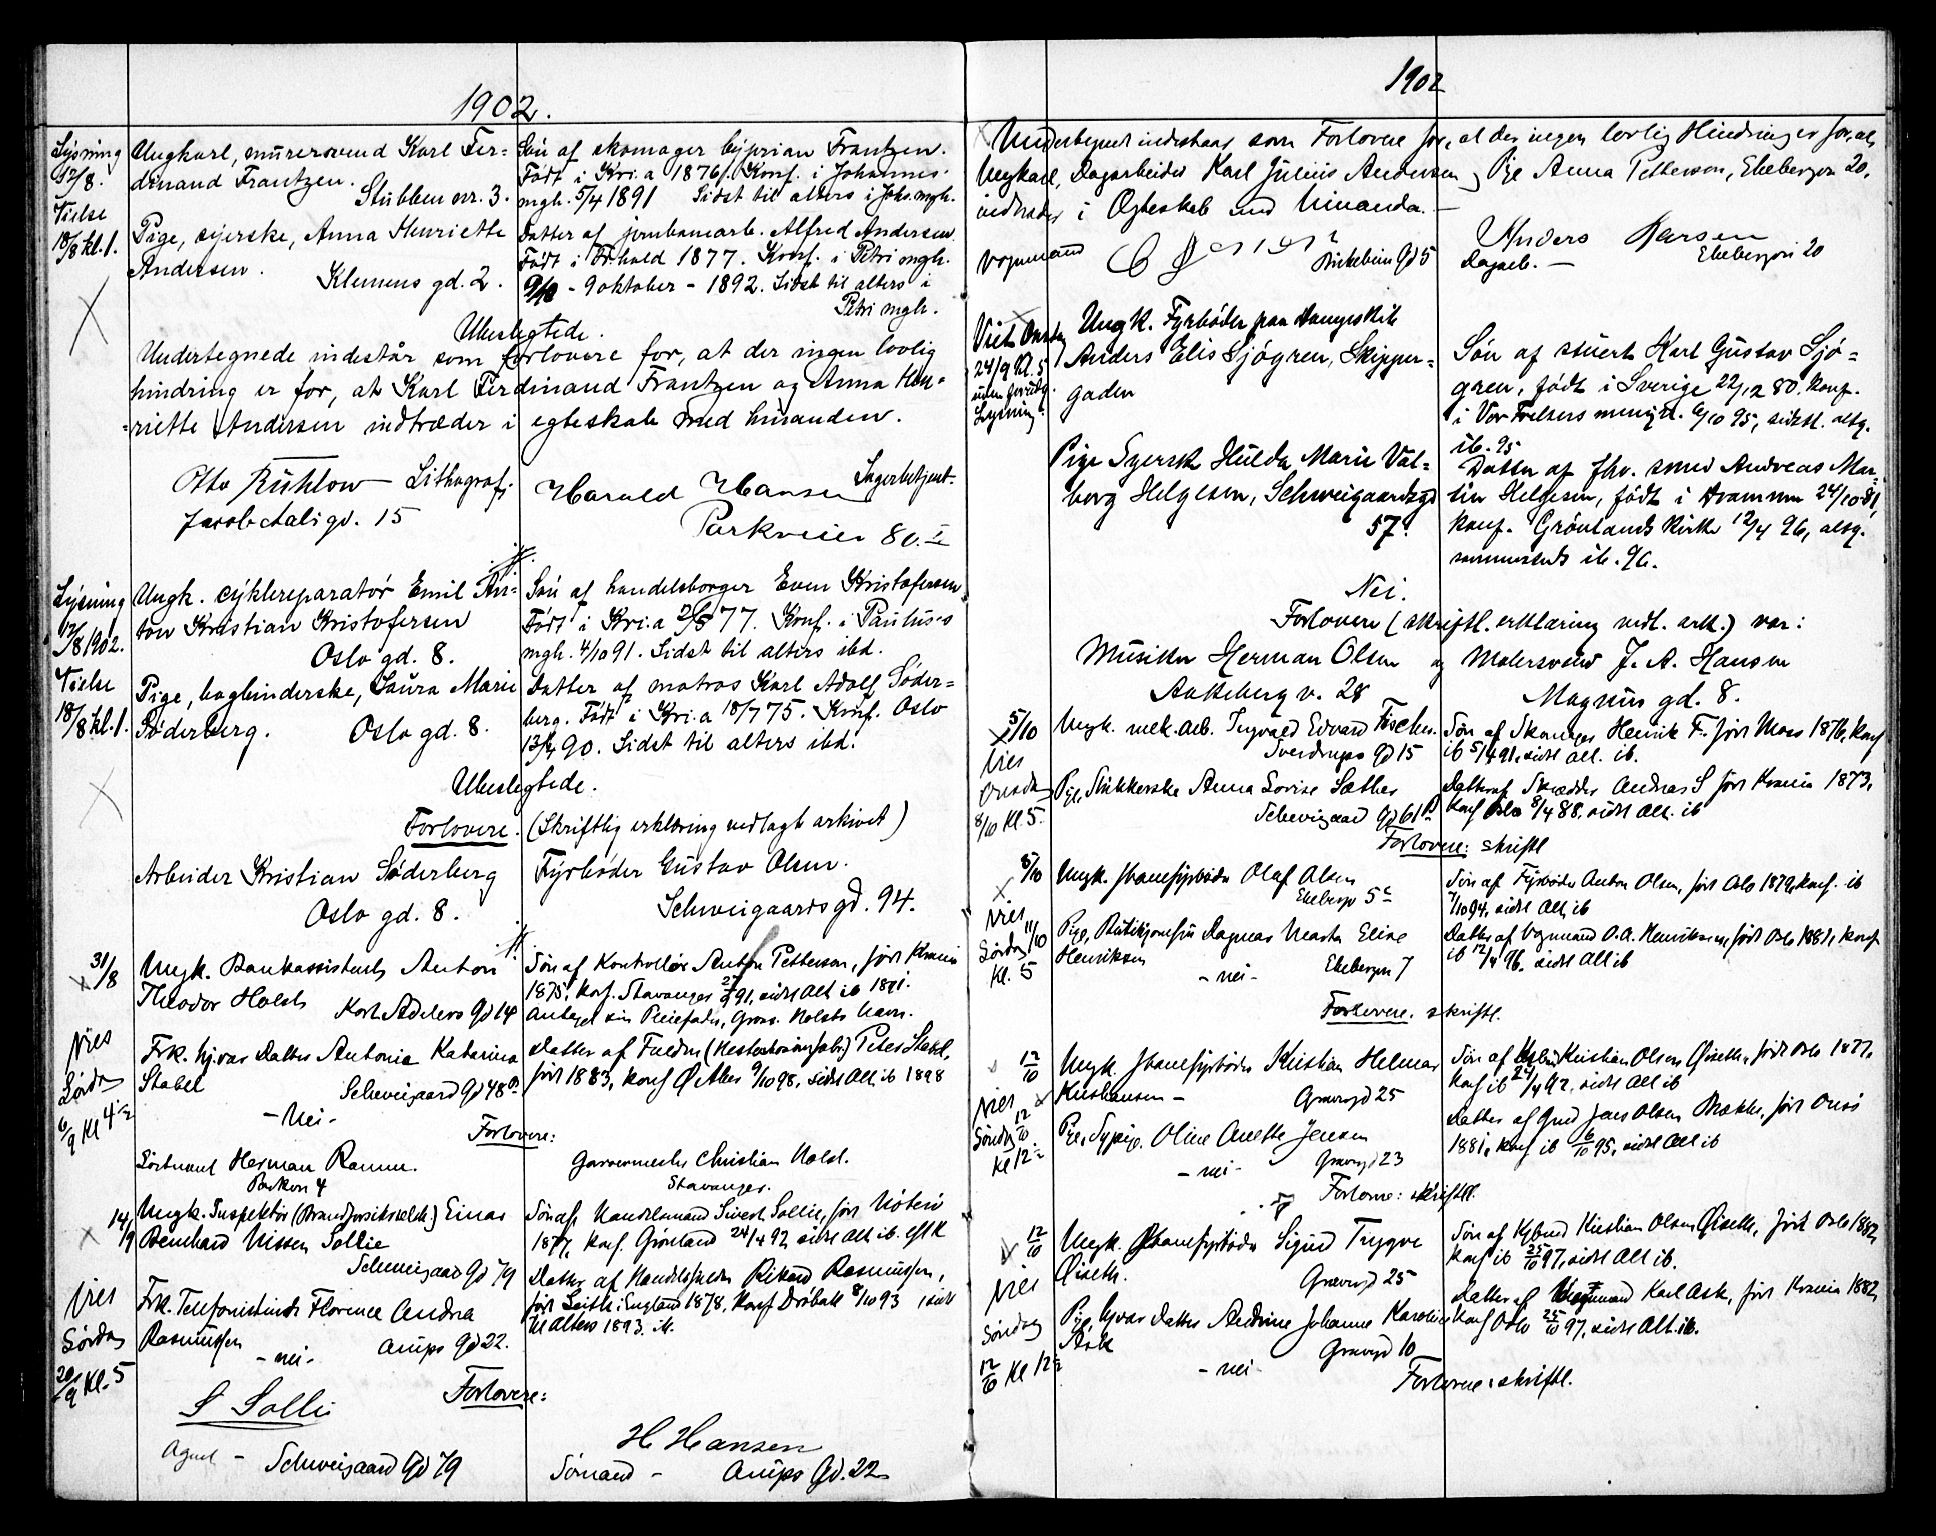 1902.
Lysning
12/8.
Vielse
18/8 kl. 1.
Ungkarl, murersvend Karl Fer-
dinand Frantzen.
Stubben nr. 3.
Pige, syerske, Anna Henriette
Andersen.
Klemens gd. 2.
Søn af skomager Cyprian Frantzen.
Født i Kri.a 1876. Konf. i Johannes-
mgh. 5/4 1891 Sidst til alters i Johs. mgh.
Datter af jernbanearb. Alfred Andersen.
Født i Fr.hald 1877. Konf. i Petri mgh.
9/10 - 9 oktober - 1892. Sidst til alters i
Petri mgh.
Ubeslegtede.
Undertegnede indestår som forlovere for, at der ingen lovlig
hindring er for, at Karl Ferdinand Frantzen og Anna Hen-
riette Andersen indtræder i egteskab med hinanden.
Otto Rühlow Lithograf.
Jacob Aals gd. 15
Harald Hansen Lagerbetjent.
Parkveien 80. I
Lysning
12/8 1902.
Vielse
18/8 kl. 1.
Ungk. cyklereparatør Emil An-
ton Kristian Kristofersen
Oslo gd. 8.
Pige, bogbinderske, Laura Marie
Søderberg. Oslo gd. 8.
Søn af handelsborger Even Kristofersen
Født i Kri.a 77. Konf. i Paulus's
mgh. 4/10 91. Sidst til alters ibd.
Datter af matros Karl Adolf Søder-
berg. Født i Kri.a 18/7 75. Konf. Oslo
90. Sidst til alters ibd.
Ubeslegtede.
Forlovere. (Skriftlig erklæring vedlagt arkivet)
Arbeider Kristian Søderberg
Oslo gd. 8.
Fyrbøder Gustav Olsen.
Schweigaards gd. 94.
31/8
Vies
Lørdag
6/9 Kl 4 1/2
Ungk. Bankassistent Anton
Theodor Holst
Kort Adelers Gd 14
Søn af Kontrollør Anton Petterson, født Krania
1875, konf. Stavanger 91, sidst Alt ib 1891.
Antaget sin Pleiefaders, Gross. Holsts Navn.
Frk. hjv. Datter Antonia Katarina
Stabel
Schweigaard Gd 48
- Nei -
Datter af Fuldm. Peter Stabel,
født 1883, konf 9/10 98, sidst Alt. ib 1898
Forlovere:
Løitnant Herman Ramm.
Parkvn 4
Garvermester Christian Holst.
Stavanger.
14/9
Vies
Lørdag
20/9 Kl. 5
Ungk. Inspektør Einar
Bernhard Nissen Sollie
Schweigaard Gd 79
Søn af Handelsmand Sivert Sollie, født
1877, konf. Grønland 24/4 92 sidst Alt. ib.
Frk. Telefonistinde Florence Andrea
Rasmussen
- nei - Arups Gd 22.
Datter af Rikard Rasmussen,
født Leith i England 1878, konf Drøbak 8/10 93 sidst
til Alters 1893. ib.
Forlovere:
S Sollie
Agent - Schweigaard Gd 79
H Hansen
Sømand - Arups Gd. 22
1902
Undertegnet indestaar som Forlovere for, at der ingen lovlig Hindring er for, at
Ungkarl, Dagarbeider Karl Julius Andersen og Pige Anna Petterson, Ekebergvn 20,
indtræder i Ægteskab med hinanden. -
Vognmand Birkebein Gd 5
Anders Larsen
Dagarb. - Ekebergvn 20
Viet Onsdag
24/9 Kl. 5
uden forudg.
Lysning.
Ungk. Fyrbøder paa Dampskib
Anders Elis Sjögren, Skipper-
gaden
Søn af stuert Karl Gustav Sjö-
gren, født i Sverige 22/12 80. konf.
i Vor Frelsers menigh. 6/10 95, sidst. altg.
ib. 95
Pige Syersk Hulda Marie Val-
borg Helgesen, Schweigaardsgd
57.
Datter af fhv. smed Andreas Mar-
tin Helgesen, født i Drammen 24/10 81,
konf. Grönlands Kirke 12/4 96, altg.
sammesteds ib. 96.
Nei.
Forlovere (skriftl. erklæring vedl. ark.) var:
Musiker Herman Olsen og Malersvend J. A. Hansen
Aakeberg v. 28 Magnus gd. 8.
5/10
Vies
Onsdag
8/10 Kl. 5.
Ungk. mek. Arb. Ingvald Edvard Fischer.
Sverdrups Gd 15
Søn af Skomager Henrik F. født Moss 1876, konf
ib 5/4 91, sidst all. ib.
Pige, Strikkerske Anna Lovise Sæther
Schweigaard Gd 61
Datter af Skrædder Andreas S født Krania 1873,
konf Oslo 8/4 88, sidst Alt. ib
Forlovere: skriftl
5/10
Vies
Lørdag 11/10
Kl. 5
Ungk. Olaf Olsen
Ekebergv 5
Søn af Fyrbøder Anton Olsen, født Oslo 1879, konf. ib
7/10 94, sidst Alt. ib
Pige, Dagmar Marta Elise
Henriksen
- nei - Ekebergvn 7
Datter af Vognmand O. A. Henriksen, født Oslo 1881, konf
ib 12/4 96, sidst Alt ib
Forlovere. skriftl.
12/10
Vies
Søndag 12/10
Kl 12
Ungk. Kristian Helmer
Kristiansen -
Grønvgd 25
Søn af Kristian Olsen Øiseth, født Oslo 1877,
konf ib 24/4 92, sidst Alt ib
Pige, Sypige, Oline Anette Jensen
- nei - Grønvgd 23
Datter af Jens Olsen født
1881, konf ib 6/10 95, sidst Alt ib
Forlovere: skriftl.
12/10
Vies
Søndag
12/10 Kl 12
Ungk. Sigurd Trygve
Øiseth.
Grønvgd 25
Søn af Kristian Olsen Øiseth, født Oslo 1882,
konf ib 25/10 97, sidst Alt ib.
Pige, hjv. Datter Andrine Johanne Karoline
Ask
- nei - Grønvgd 10
Datter af Vognmand Karl Ask, født Krania 1882,
konf Oslo 25/10 97, sidst Alt. ib.
Forlovere: skriftl.